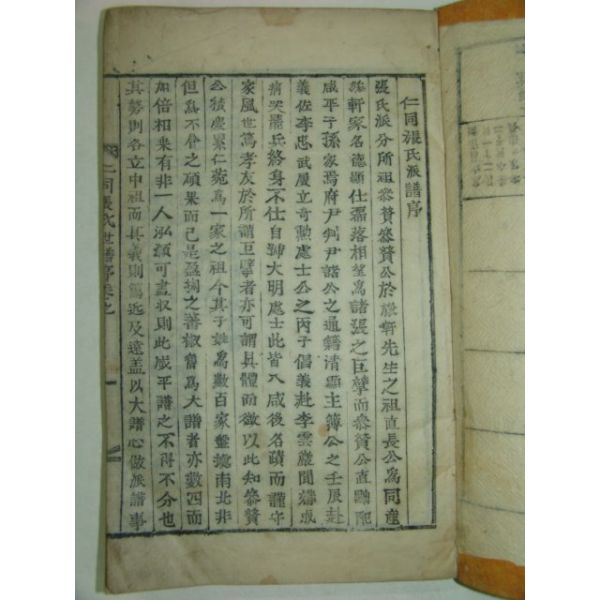 仁同張氏派譜序
張氏派分所祖參贊參贊公於旅軒先生之祖直長公爲同產
軒家名德顯仕磊落相望爲諸張之巨擘而參贊公直
咸平子孫家焉府尹判尹諸公之通籍淸顯主簿公之壬辰赴
義佐李忠武屢立奇勳處士公之丙子倡義赴李雲巖聞媾成
痛哭罷兵終身不仕自號大明處士此皆入咸後名蹟而謹守
家風世篤孝友於所謂巨擘者亦可謂具體而微以此知參贊
公積慶累仁菀爲一家之祖今其子姓爲數百家盤據南北非
但爲不食之碩果而已是蕃衍之椒聊爲大譜者亦數四而
加倍相來有非一人泓穎可盡收則此咸平譜之不得不分也
其勢則各立中祖而其義則篤近及遠盖以大譜心做派譜事
仁同張氏世譜序卷之